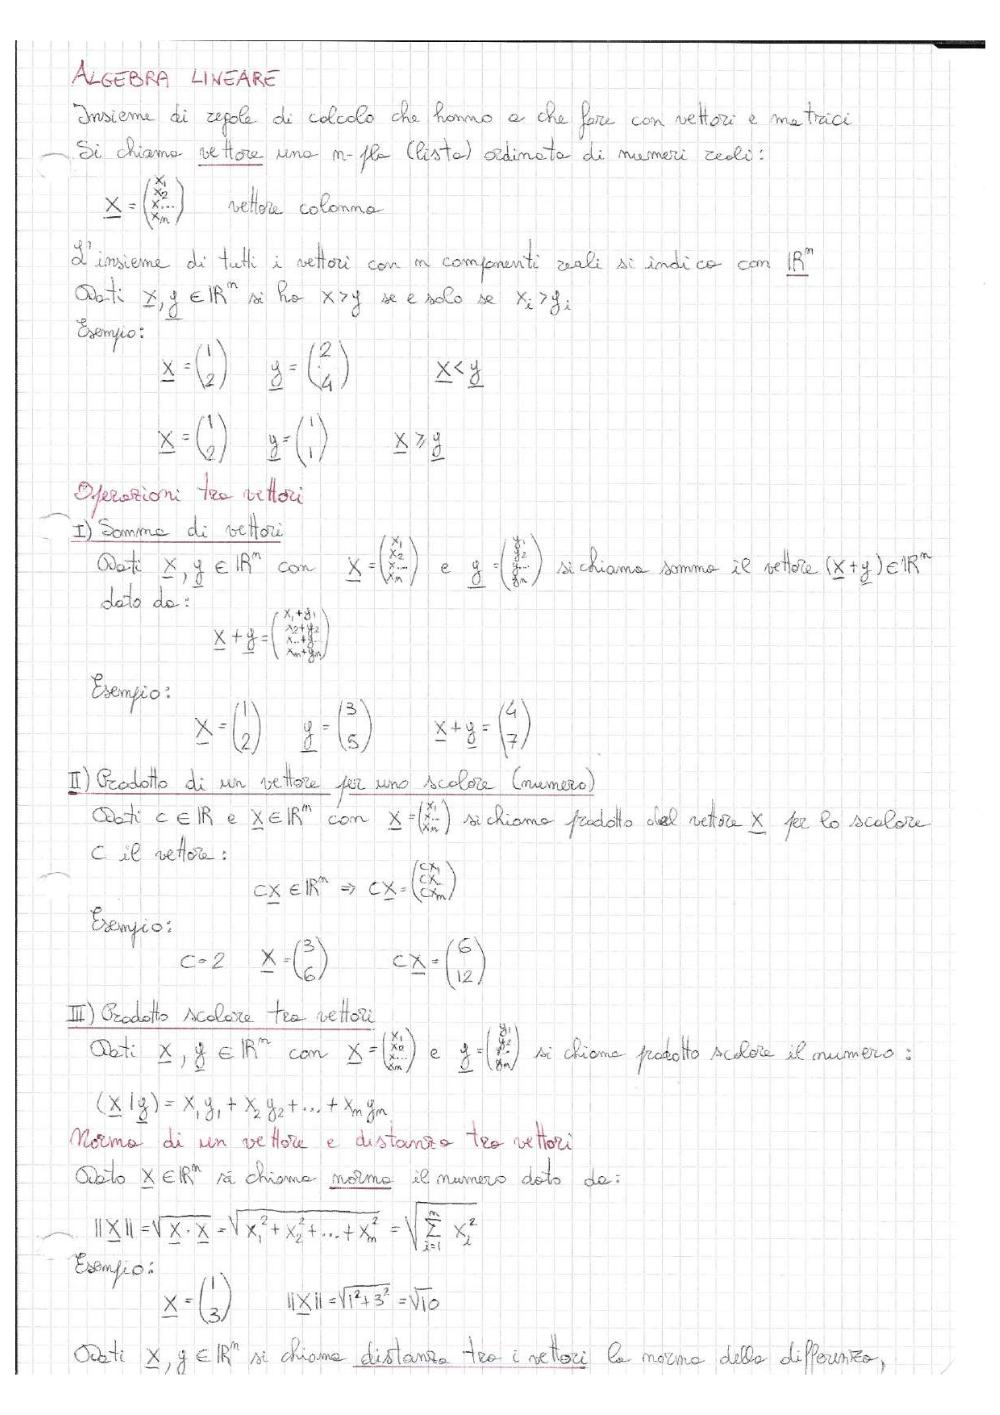 ALGEBRA LINEARE
Insieme di regole di calcolo che hanno a che fare con vettori e matrici
Si chiama vettore una n-pla (lista) ordinata di numeri reali:
x = (x₁ x₂ x... xₙ) vettore colonna
L'insieme di tutti i vettori con n componenti reali si indica con ℝⁿ
Dati x, y ∈ ℝⁿ si ha x > y se e solo se xᵢ > yᵢ
Esempio:
x = (1 2) y = (2 4) x < y
x = (1 2) y = (1 1) x ⩾ y
Operazioni tra vettori
I) Somma di vettori
Dati x, y ∈ ℝⁿ con x = (x₁ x₂ x... xₙ) e y = (y₁ y₂ y... yₙ) si chiama somma il vettore (x+y) ∈ ℝⁿ
dato da:
x + y = (x₁+y₁ x₂+y₂ x...+y... xₙ+yₙ)
Esempio:
x = (1 2) y = (3 5) x + y = (4 7)
II) Prodotto di un vettore per uno scalare (numero)
Dati c ∈ ℝ e x ∈ ℝⁿ con x = (x₁ x... xₙ) si chiama prodotto del vettore x per lo scalare
c il vettore:
cx ∈ ℝⁿ ⇒ cx = (cx₁ cx... cxₙ)
Esempio:
c = 2 x = (3 6) cx = (6 12)
III) Prodotto scalare tra vettori
Dati x, y ∈ ℝⁿ con x = (x₁ x₂ x... xₙ) e y = (y₁ y₂ y... yₙ) si chiama prodotto scalare il numero:
(x|y) = x₁y₁ + x₂y₂ + ... + xₙyₙ
Norma di un vettore e distanza tra vettori
Dato x ∈ ℝⁿ si chiama norma il numero dato da:
||x|| = √(x · x) = √(x₁² + x₂² + ... + xₙ²) = √(∑ⁿᵢ₌₁ xᵢ²)
Esempio:
x = (1 3) ||x|| = √(1² + 3²) = √10
Dati x, y ∈ ℝⁿ si chiama distanza tra i vettori la norma della differenza,